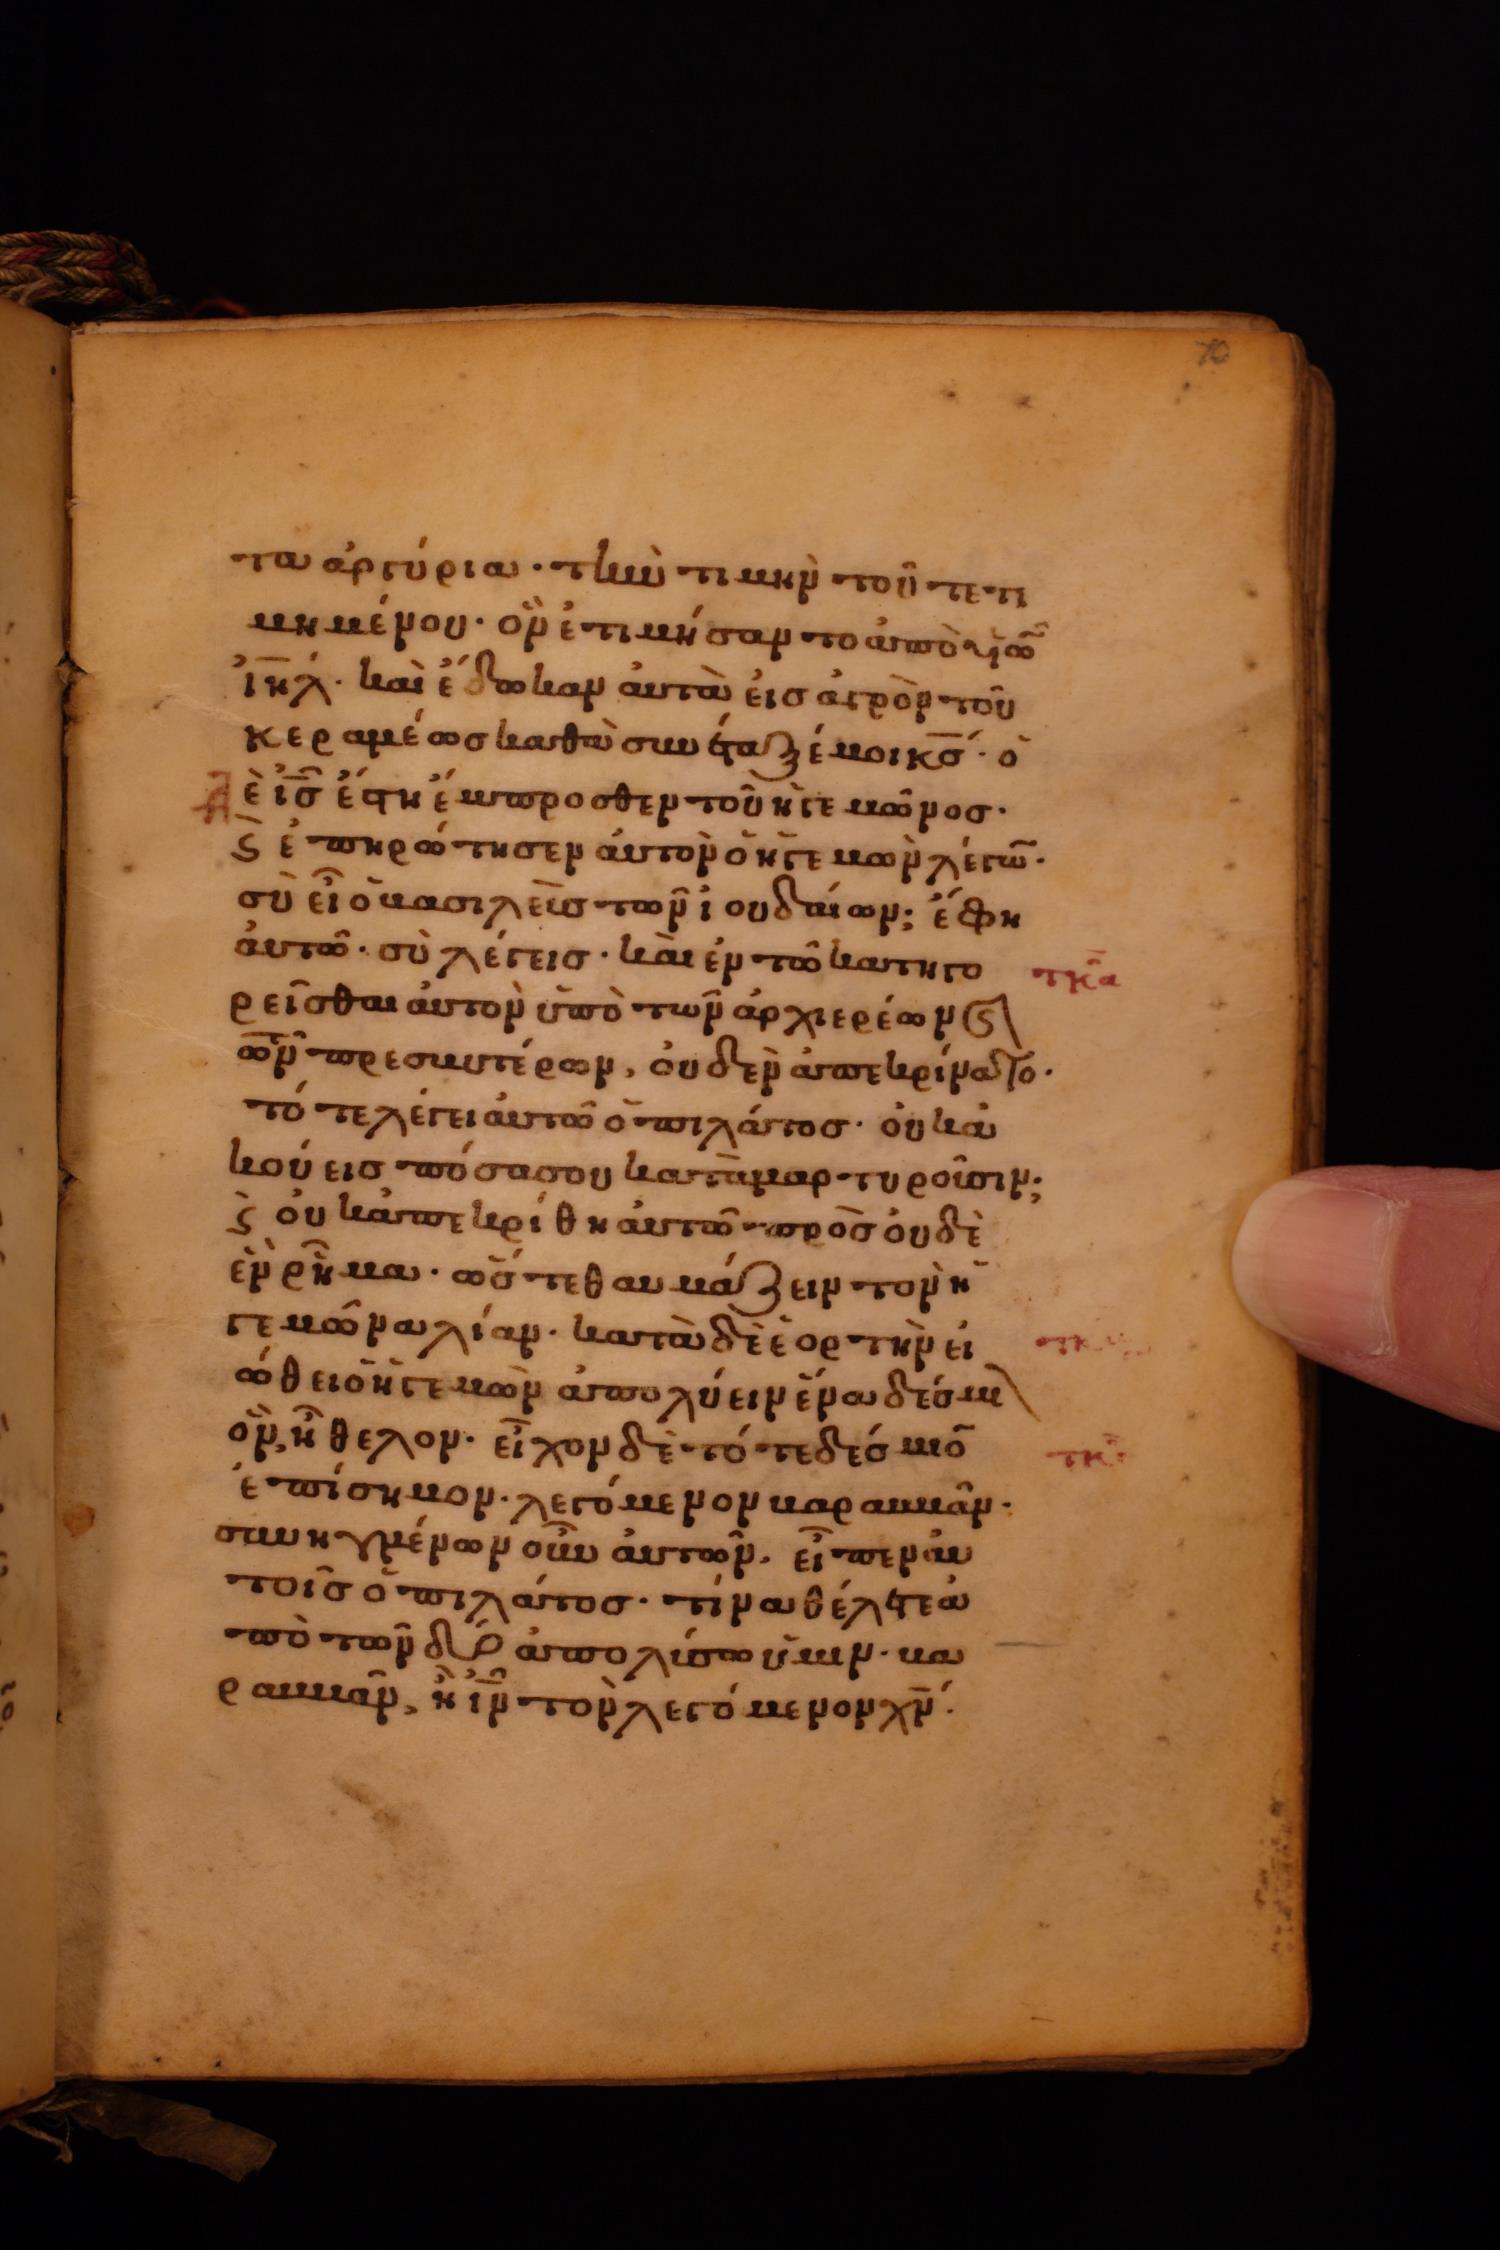 70
τα ἀργύρια· τὴν τιμὴν τοῦ τετι
μημένου· ὃν ἐτιμήσαντο ἀπὸ υἱῶ
ἰηλ· καὶ ἔδωκαν ἀυτὰ ἐις ἀγρὸν τοῦ
κεραμέως καθὰ συνέταξέ μοι κς· ὁ
δὲ ἰς ἔστη ἔμπροσθεν τοῦ ἡγεμῶνος·
ϛ ἐπηρώτησεν ἀυτὸν ὁ ἡγεμὼν λέγων·
σὺ εἶ ὁ βασιλεὺς τῶν ἰουδαίων; ἔφη
ἀυτῶ· σὺ λέγεις· καὶ ἐν τῶ κατηγο
τκα
ρεῖσθαι ἀυτὸν ὑπὸ τῶν ἀρχιερέων ϛ
τῶν πρεσβυτέρων, ὀυδὲν ἀπεκρίνατο·
τότε λέγει ἀυτῶ ὁ πιλάτος· ὀυκ ἀ
κούεις πόσα σου καταμαρτυροῦσιν;
ϛ ὀυκ ἀπεκρίθη ἀυτῶ πρὸς ὀυδὲ
ἓν ῥῆμα· ὥστε θαυμάζειν τὸν ἡ
γεμῶνα λίαν· κατὰ δὲ ἑορτὴν εἰ
ώθει ὁ ἡγεμὼν ἀπολύειν ἕνα δέσμι
ὃν, ἤθελον· εἶχον δὲ τότε δέσμιο
ἐπίσημον· λεγόμενον βαραββᾶν·
συνηγμένων οὖν ἀυτῶν, εἶπεν ἀυ
τοῖς ὁ πιλάτος· τίνα θέλετε ἀ
πὸ τῶν δύο ἀπολύσω ὑμῖν· βα
ραββᾶν, ἢ ἰν τὸν λεγόμενον χν·